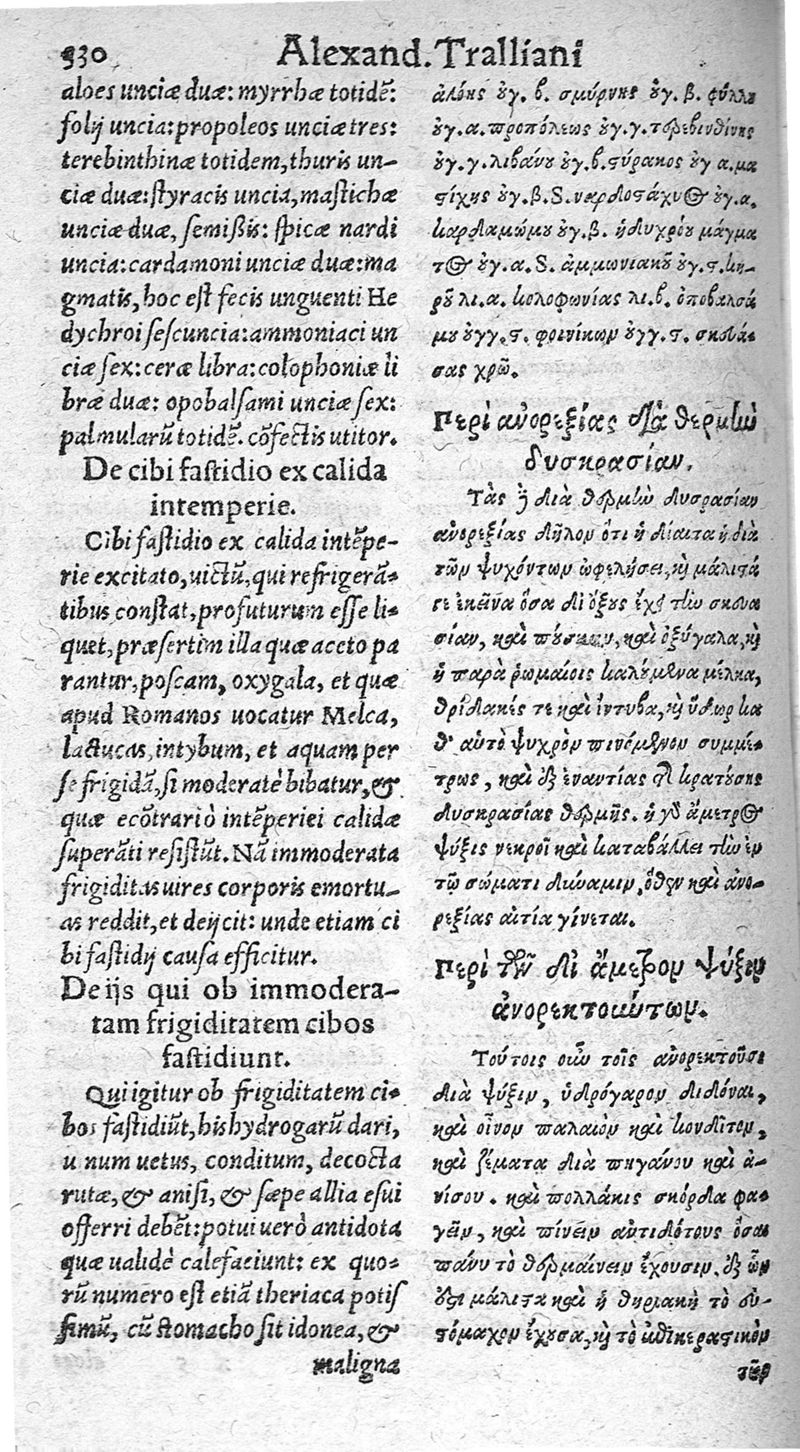 330 Alexand. Tralliani
aloes unciæ duæ: myrrhæ totidẽ:
folij uncia: propoleos unciæ tres:
terebinthinæ totidem, thuris un-
ciæ duæ: ſtyracis uncia, maſtichæ
unciæ duæ, ſemißis: ſpicæ nardi
uncia: cardamoni unciæ duæ: ma
gmatis, hoc eſt fecis unguenti He
dychroi ſeſcuncia: ammoniaci un
ciæ ſex: ceræ libra: colophoniæ li
bræ duæ: opobalſami unciæ ſex:
palmularũ totidẽ. cõfectis utitor.
De cibi faſtidio ex calida
intemperie.
Cibi faſtidio ex calida intẽpe-
rie excitato, uictũ, qui refrigerã-
tibus conſtat, profuturum eſſe li-
quet, præſertim illa quæ aceto pa
rantur, poſcam, oxygala, et quæ
apud Romanos uocatur Melca,
lactucas, intybum, et aquam per
ſe frigidã, ſi moderatè bibatur, &
quæ ecõtrariò intẽperiei calidæ
ſuperãti reſiſtũt. Nã immoderata
frigiditas uires corporis emortu-
as reddit, et deijcit: unde etiam ci
bi faſtidij cauſa efficitur.
De ijs qui ob immodera-
tam frigiditatem cibos
faſtidiunt.
Qui igitur ob frigiditatem ci-
bos faſtidiũt, his hydrogarũ dari,
uinum uetus, conditum, decocta
rutæ, & aniſi, & ſæpe allia eſui
offerri debẽt: potui uerò antidota
quæ ualidè calefaciunt: ex quo-
rũ numero eſt etiã theriaca potiſ
ſimũ, cũ ſtomacho ſit idonea, &
maligna
ἀλόης ȣγ. β. σμύρνης ȣγ. β. φύλλȣ
ȣγ. α. προπόλεως ȣγ. γ. τερεβινθίνης
ȣγ. γ. λιβάνȣ ȣγ. β. ϛύρακος ȣγ α. μα
ϛίχης ȣγ. β. S. ναρδοϛάχυος ȣγ. α.
καρδαμώμȣ ȣγ. β. ἡδυχρόȣ μάγμα
τος ȣγ. α. S. ἀμμωνιακοῦ ȣγ. ϛ. κη-
ρȣ͂ λι. α. κολοφωνίας λι. β. ὀποβαλσά
μȣ ȣγγ. ϛ. φοινίκων ȣγγ. ϛ. σκευά-
σας χρῶ.
Περὶ ἀνορεξίας διὰ θερμὴν
δυσκρασίαν.
Τὰς δὲ διὰ θερμὴν δυσκρασίαν
ἀνορεξίας δῆλον ὅτι ἡ δίαιτα ἡ διὰ
τῶν ψυχόντων ὠφελήσει, καὶ μάλιϛά
γε ἐκεῖνα ὅσα δι᾽ ὄξους ἔχει τὴν σκευα
σίαν, καὶ πούσκαν, καὶ ὀξύγαλα, καὶ
ἡ παρὰ ῥωμαίοις καλȣμένα μέλκα,
θρίδακές τε καὶ ἴντυβα, καὶ ὕδωρ κα
θ᾽ αὑτὸ ψυχρὸν πινόμενον συμμέ-
τρως, καὶ ἐξ ἐναντίας τῆς κρατούσης
δυσκρασίας θερμῆς. ἡ γὰρ ἄμετρος
ψύξις νεκροῖ καὶ καταβάλλει τὴν ἐν
τῷ σώματι δύναμιν, ὅθεν καὶ ἀνο-
ρεξίας αἰτία γίνεται.
Περὶ τῶν δι᾽ ἄμετρον ψύξιν
ἀνορεκτούντων.
Τούτοις οὖν τοῖς ἀνορεκτοῦσι
διὰ ψύξιν, ὑδρόγαρον διδόναι,
καὶ οἶνον παλαιὸν καὶ κονδῖτον,
καὶ ζέματα διὰ πηγάνου καὶ ἀ-
νίσου. καὶ πολλάκις σκόρδα φα-
γεῖν, καὶ πίνειν ἀντιδότους ὅσαι
πάνυ τὸ θερμαίνειν ἔχουσιν, ἐξ ὧν
ἐϛι μάλιϛα καὶ ἡ θηριακὴ τὸ εὐ-
ϛόμαχον ἔχουσα, καὶ τὸ ἐπικερατικὸν
τῶν